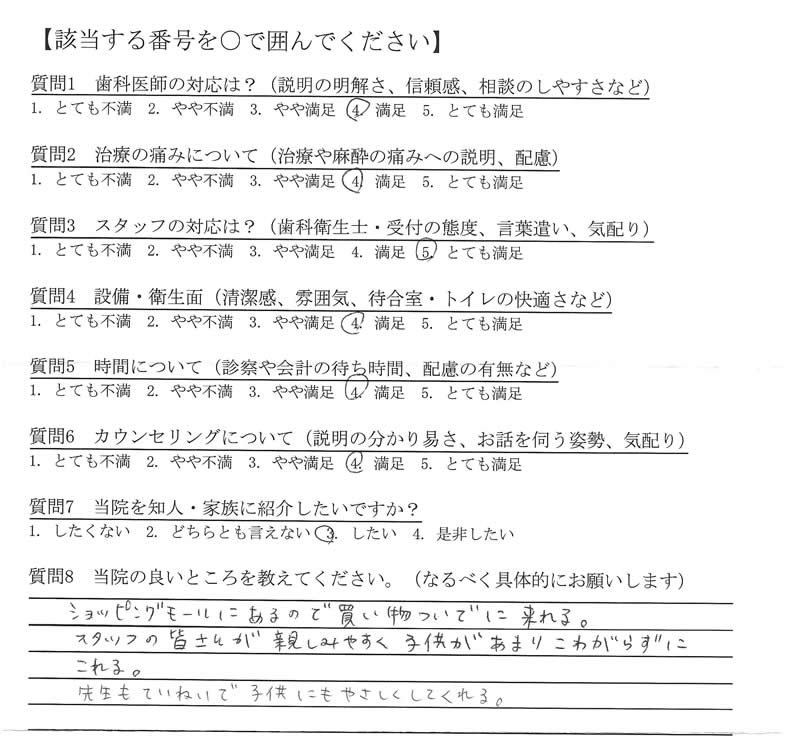 【該当する番号を○で囲んでください】
質問1　歯科医師の対応は？（説明の明解さ、信頼感、相談のしやすさなど）
1. とても不満　2. やや不満　3. やや満足　4. 満足　5. とても満足
質問2　治療の痛みについて（治療や麻酔の痛みへの説明、配慮）
1. とても不満　2. やや不満　3. やや満足　4. 満足　5. とても満足
質問3　スタッフの対応は？（歯科衛生士・受付の態度、言葉遣い、気配り）
1. とても不満　2. やや不満　3. やや満足　4. 満足　5. とても満足
質問4　設備・衛生面（清潔感、雰囲気、待合室・トイレの快適さなど）
1. とても不満　2. やや不満　3. やや満足　4. 満足　5. とても満足
質問5　時間について（診察や会計の待ち時間、配慮の有無など）
1. とても不満　2. やや不満　3. やや満足　4. 満足　5. とても満足
質問6　カウンセリングについて（説明の分かり易さ、お話を伺う姿勢、気配り）
1. とても不満　2. やや不満　3. やや満足　4. 満足　5. とても満足
質問7　当院を知人・家族に紹介したいですか？
1. したくない　2. どちらとも言えない　3. したい　4. 是非したい
質問8　当院の良いところを教えてください。（なるべく具体的にお願いします）
ショッピングモールにあるので買い物ついでに来れる。
スタッフの皆さんが親しみやすく子供があまりこわがらずに
これる。
先生もていねいで子供にもやさしくしてくれる。